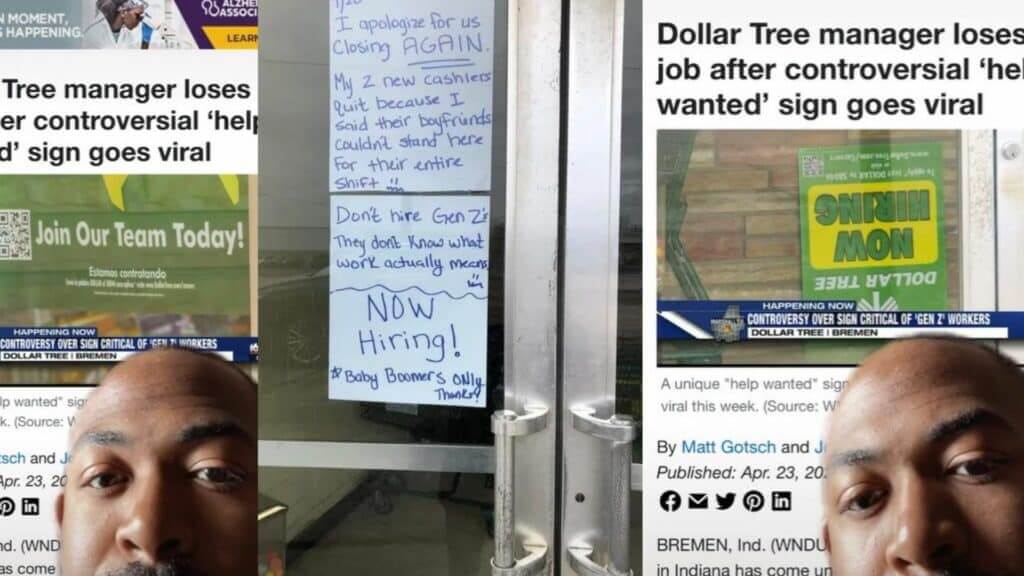 N MOMENT,
S HAPPENING.
ALZHE
ASSOCI
LEARN
Tree manager loses
er controversial ‘help
d’ sign goes viral
Join Our Team Today!
Estamos contratando
HAPPENING NOW
CONTROVERSY OVER SIGN CRITICAL OF 'GEN Z' WORKERS
DOLLAR TREE | BREMEN
lp wanted" sig
k. (Source: W
tsch and J
Apr. 23, 20
nd. (WND
as come
I apologize for us
Closing AGAIN.
My 2 new cashiers
quit because I
said their boyfriends
couldn't stand here
for their entire
shift
Don't hire Gen Z's
They don't know what
work actually means
NOW
Hiring!
*Baby Boomers ONLY
Thanks!
Dollar Tree manager loses
job after controversial ‘hel
wanted’ sign goes viral
NOW
HIRING
DOLLAR TREE
HAPPENING NOW
CONTROVERSY OVER SIGN CRITICAL OF 'GEN Z' WORKERS
DOLLAR TREE | BREMEN
A unique "help wanted" sign
viral this week. (Source: W
By Matt Gotsch and J
Published: Apr. 23, 20
BREMEN, Ind. (WNDU
in Indiana has come un